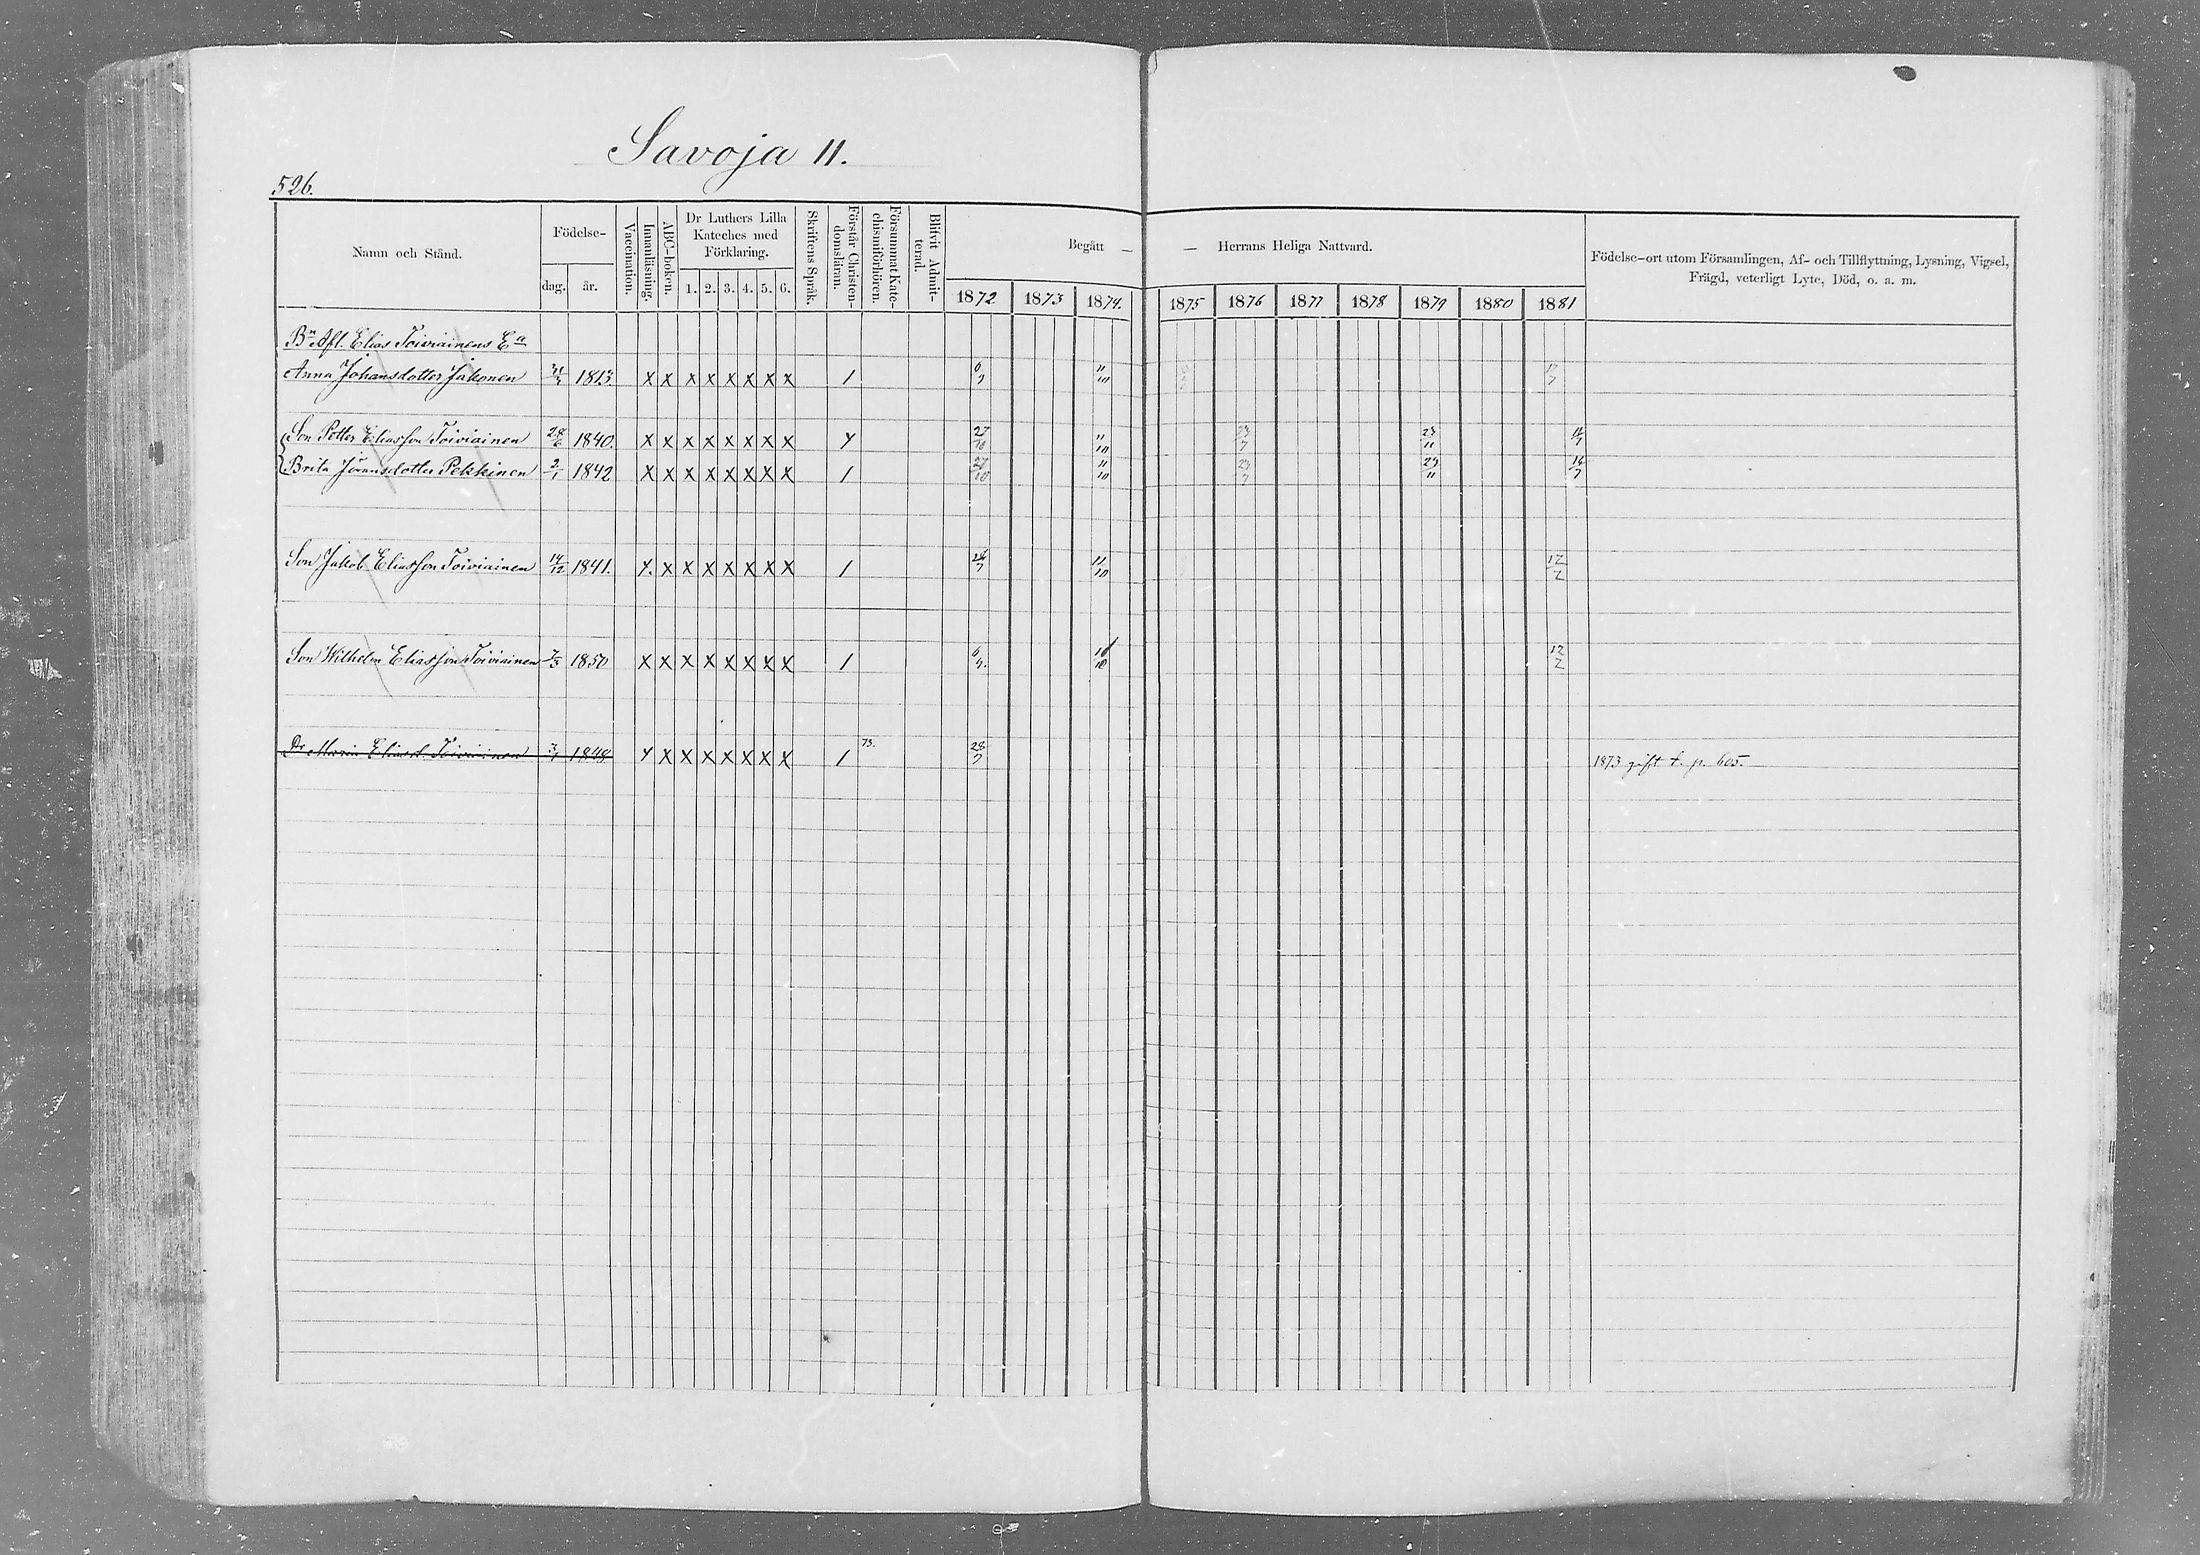 Savoja 11.
526.
Namn och Stånd. Födelse- dag. år. Vaccination. Innanläsning. ABC-boken. Dr Luthers Lilla Kateches med Förklaring. 1. 2. 3. 4. 5. 6. Skriftens Språk. Förstår Christendomsläran. Försummat Katechismiförhören. Blifvit Admitterad. Begått — — Herrans Heliga Nattvard. Födelse-ort utom Församlingen, Af- och Tillflyttning, Lysning, Vigsel, Frägd, veterligt Lyte, Död, o. a. m.
1872 1873 1874. 1875 1876 1877 1878 1879 1880 1881
Bn Afl. Elias Toiviainens Ea
Anna Johansdotter Jakonen 1813 X X X X X X X X 1 11/10
Son Petter Eliasson Toiviainen 28/6 1840. X X X X X X X X 27/10 11/10 23/7 23/11 14/7
Brita Göransdotter Pekkinen 2/1 1842 X X X X X X X X 1 27/10 11/10 23/7 23/11 14/7
Son Jakob Eliasson Toiviainen 14/12 1841. X X X X X X X X 1 11/10 12/2
Son Wilhelm Eliasson Toiviainen 7/3 1850 X X X X X X X X 1 12/2
Dr Maria Eliasd. Toiviainen 1848 X X X X X X X X 1 73. 1873 gift t. p. 605.